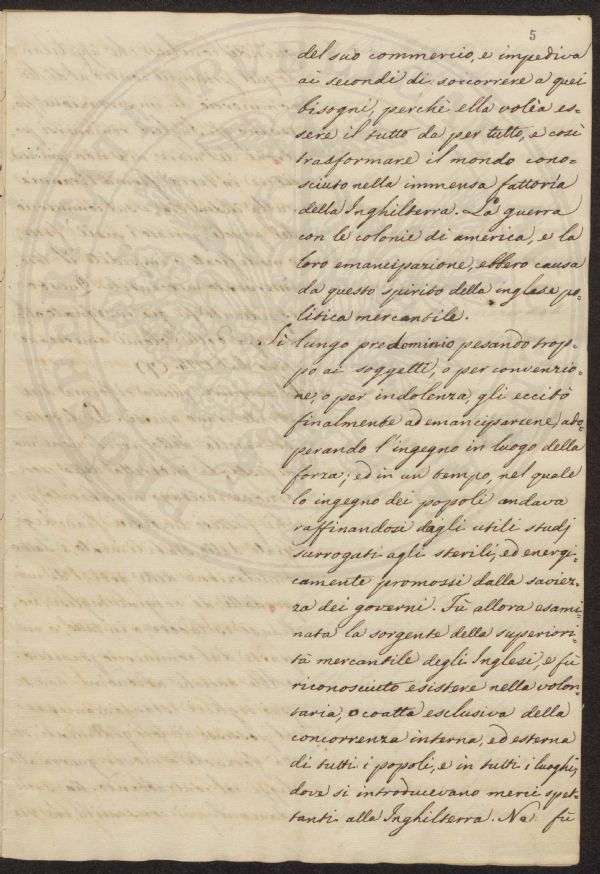 5
del suo commercio, e impediva
ai secondi di soccorrere a quei
bisogni, perchè ella volea es=
sere il tutto da per tutto, e così
trasformare il mondo cono=
sciuto nella immensa fattoria
della Inghilterra. La guerra
con le colonie di america, e la
loro emancipazione, ebbero causa
da questo spirito della inglese po=
litica mercantile.
Sì lungo predominio pesando trop=
po ai soggetti, o per convenzio=
ne, o per indolenza, gli eccitò
finalmente ad emanciparsene, ado=
perando l'ingegno in luogo della
forza; ed in un tempo, nel quale
lo ingegno dei popoli andava
raffinandosi dagli utili studj
surrogati agli sterili, ed energi=
camente promossi dalla saviez=
za dei governi. Fù allora esami=
nata la sorgente della superiori=
tà mercantile degli Inglesi, e fù
riconosciuto esistere nella volon=
taria, o coatta esclusiva della
concorrenza interna, ed esterna
di tutti i popoli, e in tutti i luoghi,
dove si introducevano merci spet=
tanti alla Inghilterra. Ne fù